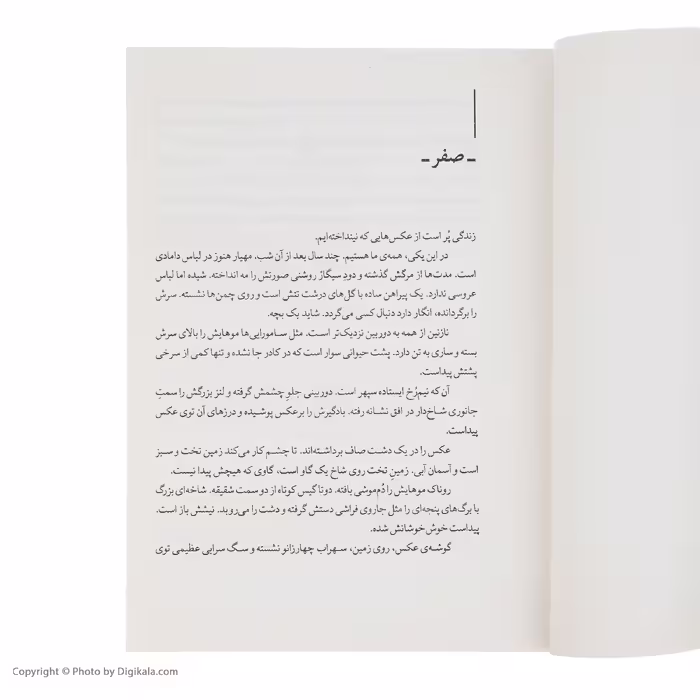 ـ صفر ـ
زندگی پُر است از عکس‌هایی که نینداخته‌ایم.
در این یکی، همه‌ی ما هستیم. چند سال بعد از آن شب. مهیار هنوز در لباس دامادی
است. مدت‌ها از مرگش گذشته و دودِ سیگار روشنی صورتش را مه انداخته. شیده اما لباس
عروسی ندارد. یک پیراهن ساده با گل‌های درشت تنش است و روی چمن‌ها نشسته. سرش
را برگردانده، انگار دارد دنبال کسی می‌گردد. شاید یک بچه.
نازنین از همه به دوربین نزدیک‌تر است. مثل سامورایی‌ها موهایش را بالای سرش
بسته و ساری به تن دارد. پشت حیوانی سوار است که در کادر جا نشده و تنها کمی از سرخی
پشتش پیداست.
آن که نیم‌رُخ ایستاده سپهر است. دوربینی جلوِ چشمش گرفته و لنز بزرگش را سمتِ
جانوری شاخ‌دار در افق نشانه رفته. بادگیرش را برعکس پوشیده و درزهای آن توی عکس
پیداست.
عکس را در یک دشت صاف برداشته‌اند. تا چشم کار می‌کند زمین تخت و سبز
است و آسمان آبی. زمینِ تخت روی شاخ یک گاو است، گاوی که هیچش پیدا نیست.
روناک موهایش را دُم‌موشی بافته. دوتا گیس کوتاه از دو سمت شقیقه. شاخه‌ای بزرگ
با برگ‌های پنجه‌ای را مثل جاروی فراشی دستش گرفته و دشت را می‌روبد. نیشش باز است.
پیداست خوش‌خوشانش شده.
گوشه‌ی عکس، روی زمین، سهراب چهارزانو نشسته و سگ سرابی عظیمی توی
Copyright © Photo by Digikala.com